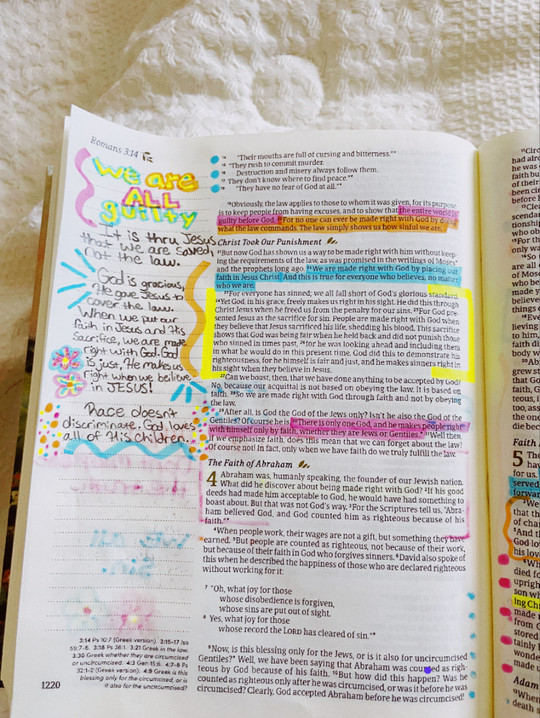 Romans 3:14
We are
ALL
guilty
It is thru Jesus
that we are saved,
not the law.
God is gracious,
He gave Jesus to
cover the law.
When we put our
faith in Jesus and His
Sacrifice, we are made
right with God. God
is Just, He makes us
right when we believe
in JESUS!
Race doesn't
discriminate. God loves
all of His children.
3:14 Ps 10:7 (Greek version). 3:15-17 Isa
59:7-8. 3:18 Ps 36:1. 3:21 Greek in the law.
3:30 Greek whether they are circumcised
or uncircumcised. 4:3 Gen 15:6. 4:7-8 Ps
32:1-2 (Greek version). 4:9 Greek is this
blessing only for the circumcised, or is
it also for the uncircumcised?
1220
14 "Their mouths are full of cursing and bitterness."*
15 "They rush to commit murder.
16 Destruction and misery always follow them.
17 They don't know where to find peace."*
18 "They have no fear of God at all."*
19 Obviously, the law applies to those to whom it was given, for its purpose
is to keep people from having excuses, and to show that the entire world is
guilty before God. 20 For no one can ever be made right with God by doing
what the law commands. The law simply shows us how sinful we are.
Christ Took Our Punishment
21 But now God has shown us a way to be made right with him without keep-
ing the requirements of the law, as was promised in the writings of Moses*
and the prophets long ago. 22 We are made right with God by placing our
faith in Jesus Christ. And this is true for everyone who believes, no matter
who we are.
23 For everyone has sinned; we all fall short of God's glorious standard.
24 Yet God, in his grace, freely makes us right in his sight. He did this through
Christ Jesus when he freed us from the penalty for our sins. 25 For God pre-
sented Jesus as the sacrifice for sin. People are made right with God when
they believe that Jesus sacrificed his life, shedding his blood. This sacrifice
shows that God was being fair when he held back and did not punish those
who sinned in times past, 26 for he was looking ahead and including them
in what he would do in this present time. God did this to demonstrate his
righteousness, for he himself is fair and just, and he makes sinners right in
his sight when they believe in Jesus.
27 Can we boast, then, that we have done anything to be accepted by God?
No, because our acquittal is not based on obeying the law. It is based on
faith. 28 So we are made right with God through faith and not by obeying
the law.
29 After all, is God the God of the Jews only? Isn't he also the God of the
Gentiles? Of course he is. 30 There is only one God, and he makes people right
with himself only by faith, whether they are Jews or Gentiles.* 31 Well then,
if we emphasize faith, does this mean that we can forget about the law?
Of course not! In fact, only when we have faith do we truly fulfill the law.
The Faith of Abraham
4 Abraham was, humanly speaking, the founder of our Jewish nation.
What did he discover about being made right with God? 2 If his good
deeds had made him acceptable to God, he would have had something to
boast about. But that was not God's way. 3 For the Scriptures tell us, "Abra-
ham believed God, and God counted him as righteous because of his
faith."*
4 When people work, their wages are not a gift, but something they have
earned. 5 But people are counted as righteous, not because of their work,
but because of their faith in God who forgives sinners. 6 David also spoke of
this when he described the happiness of those who are declared righteous
without working for it:
7 "Oh, what joy for those
whose disobedience is forgiven,
whose sins are put out of sight.
8 Yes, what joy for those
whose record the LORD has cleared of sin."*
9 Now, is this blessing only for the Jews, or is it also for uncircumcised
Gentiles?* Well, we have been saying that Abraham was counted as righ-
teous by God because of his faith. 10 But how did this happen? Was he
counted as righteous only after he was circumcised, or was it before he was
circumcised? Clearly, God accepted Abraham before he was circumcised!
Faith
5
served
forward
Adam